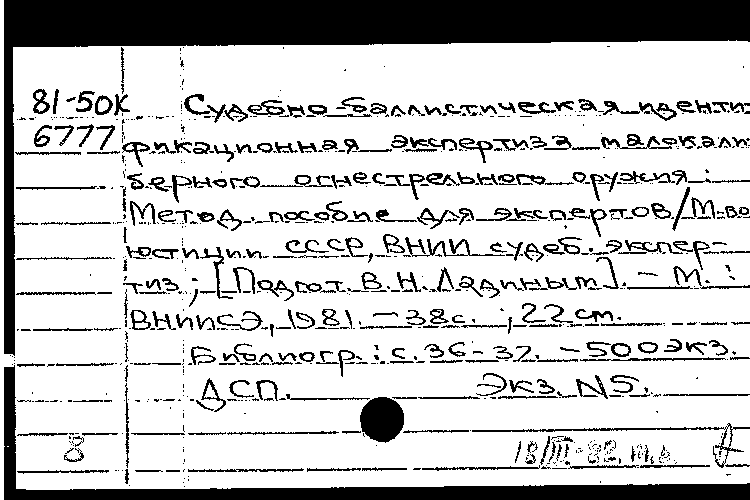 81-50К Судебно-баллистическая иденти-
6777 фикационная экспертиза малокали-
берного огнестрельного оружия :
Метод. пособие для экспертов/М-во
юстиции СССР, ВНИИ судеб. экспер-
тиз ; [Подгот. В. Н. Ладиным]. - М. :
ВНИИСЭ, 1981. - 38 с. ; 22 см.
Библиогр. : с. 36-37. - 500 экз.
ДСП. Экз. N5.
8 18/III-82.